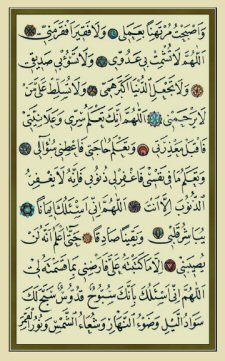 وَأَصْبَحْتُ مُرْتَهَنًا بِعَمَلِي وَلَا فَقِيرَ أَفْقَرُ مِنِّي
اللَّهُمَّ لَا تُشْمِتْ بِي عَدُوِّي وَلَا تَسُؤْ بِي صَدِيقِي
وَلَا تَجْعَلِ الدُّنْيَا أَكْبَرَ هَمِّي وَلَا تُسَلِّطْ عَلَيَّ مَنْ
لَا يَرْحَمُنِي اللَّهُمَّ إِنَّكَ تَعْلَمُ سِرِّي وَعَلَانِيَتِي
فَاقْبَلْ مَعْذِرَتِي وَتَعْلَمُ حَاجَتِي فَأَعْطِنِي سُؤَالِي
وَتَعْلَمُ مَا فِي نَفْسِي فَاغْفِرْ لِي ذُنُوبِي فَإِنَّهُ لَا يَغْفِرُ
الذُّنُوبَ إِلَّا أَنْتَ اللَّهُمَّ إِنِّي أَسْئَلُكَ إِيمَانًا
يُبَاشِرُ قَلْبِي وَيَقِينًا صَادِقًا حَتَّى أَعْلَمَ أَنَّهُ لَنْ
يُصِيبَنِي إِلَّا مَا كَتَبْتَهُ عَلَيَّ وَأَرْضِنِي بِمَا قَسَمْتَهُ لِي
اللَّهُمَّ إِنِّي أَسْئَلُكَ بِأَنَّكَ سُبُّوحٌ قُدُّوسٌ سَبَّحَ لَكَ
سَوَادُ اللَّيْلِ وَضَوْءُ النَّهَارِ وَشُعَاعُ الشَّمْسِ وَنُورُ الْقَمَرِ